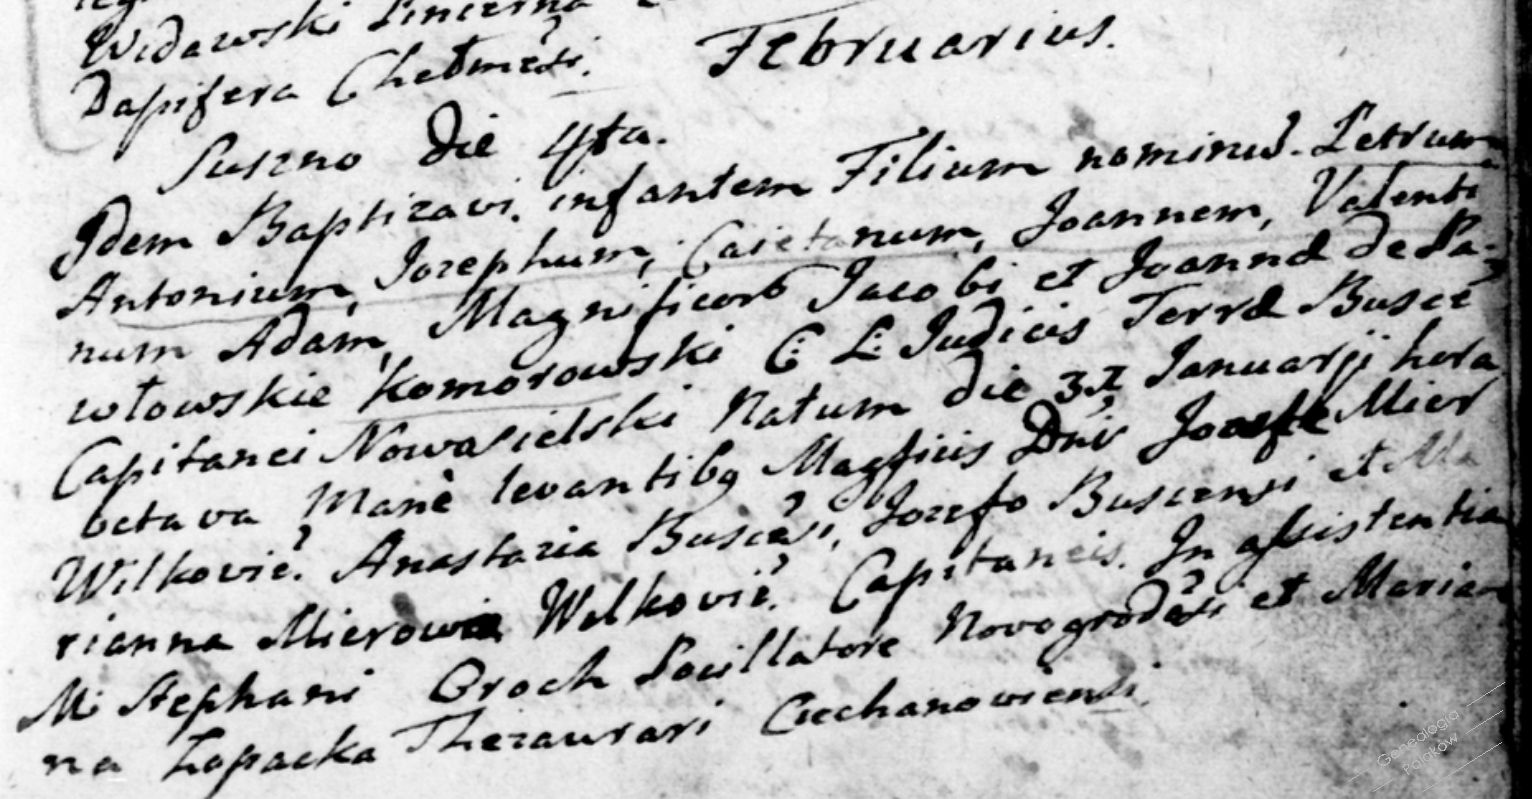 Widawski Pincerna
Dapifera Chełmēsi.
Februarius.
Suszno die 4ta.
Idem Baptizavi infantem Filium nominib. Petrum
Antonium, Iozephum, Caietanum, Joannem, Valenti
num Adam, Magnificorb Jacobi et Joannæ de Pa-
włowskie Komorowski C: L: Judicis Terræ Busce
Capitanei Nowosielski Natum die 31 Januarji hora
octava Manè levantibq Magficis Dnis Mier
Wilkovie. Anastazia Buscēsi, Jozefo Buscensi et Ma
rianna Mierowa Wilkovie. Capitaneis. In assistentia
M: Stephani Groch Pocillatore Novogrodēsi et Marian
na Łopacka Thezaurari Ciechanowiensi.
Genealogia
Polaków